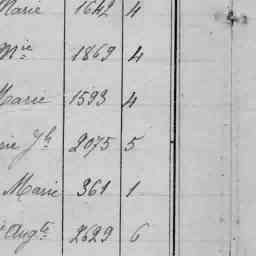 Marie 1642 4
Mie 1869 4
Marie 1593 4
rie Jh 2075 5
Marie 361 1
Augte 2629 6